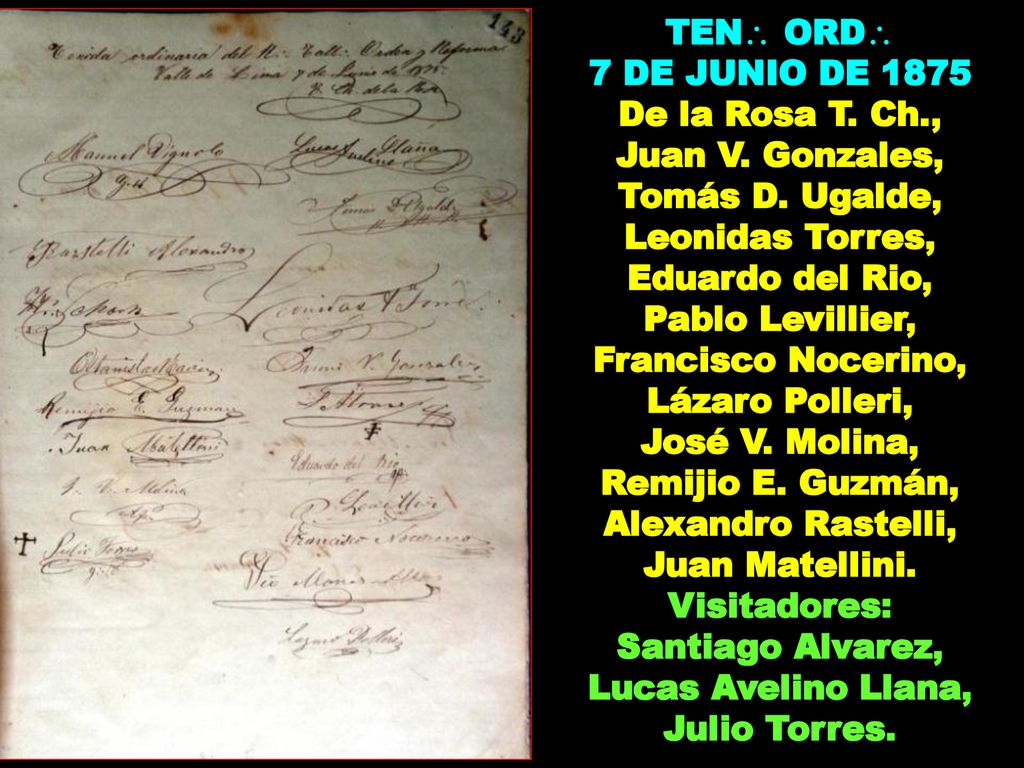 143
Tenida ordinaria del R∴ Tall∴ Orden y Reforma
Valle de Lima 7 de Junio de 1875
T. Ch. de la Rosa
Manuel Vignolo
Lucas Avelino Llana
Tomas D. Ugalde
Rastelli Alexandro
Leonidas Torres
Juan V. Gonzales
Remijio E. Guzman
F. Alonso
Juan Matellini
Eduardo del Rio
J. V. Molina
P. Levillier
Julio Torres
Francisco Nocerino
Lazaro Polleri
TEN∴ ORD∴
7 DE JUNIO DE 1875
De la Rosa T. Ch.,
Juan V. Gonzales,
Tomás D. Ugalde,
Leonidas Torres,
Eduardo del Rio,
Pablo Levillier,
Francisco Nocerino,
Lázaro Polleri,
José V. Molina,
Remijio E. Guzmán,
Alexandro Rastelli,
Juan Matellini.
Visitadores:
Santiago Alvarez,
Lucas Avelino Llana,
Julio Torres.